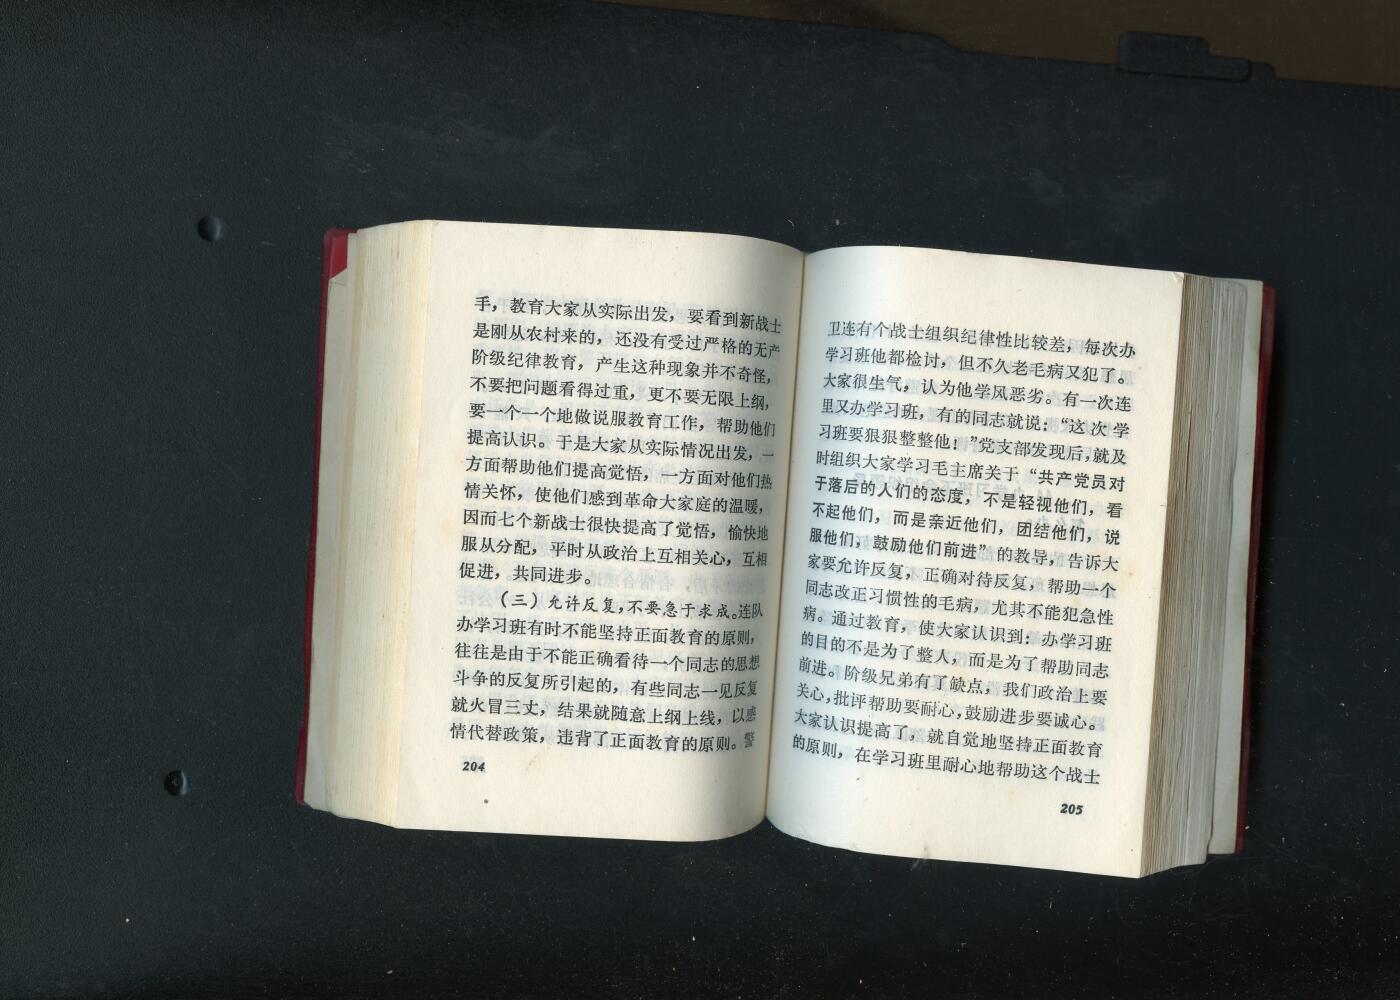 手，教育大家从实际出发，要看到新战士
是刚从农村来的，还没有受过严格的无产
阶级纪律教育，产生这种现象并不奇怪，
不要把问题看得过重，更不要无限上纲，
要一个一个地做说服教育工作，帮助他们
提高认识。于是大家从实际情况出发，一
方面帮助他们提高觉悟，一方面对他们热
情关怀，使他们感到革命大家庭的温暖，
因而七个新战士很快提高了觉悟，愉快地
服从分配，平时从政治上互相关心，互相
促进，共同进步。
（三）允许反复，不要急于求成。连队
办学习班有时不能坚持正面教育的原则，
往往是由于不能正确看待一个同志的思想
斗争的反复所引起的，有些同志一见反复
就火冒三丈，结果就随意上纲上线，以感
情代替政策，违背了正面教育的原则。警
204
卫连有个战士组织纪律性比较差，每次办
学习班他都检讨，但不久老毛病又犯了。
大家很生气，认为他学风恶劣。有一次连
里又办学习班，有的同志就说：“这次学
习班要狠狠整整他！”党支部发现后，就及
时组织大家学习毛主席关于“共产党员对
于落后的人们的态度，不是轻视他们，看
不起他们，而是亲近他们，团结他们，说
服他们，鼓励他们前进”的教导，告诉大
家要允许反复，正确对待反复，帮助一个
同志改正习惯性的毛病，尤其不能犯急性
病。通过教育，使大家认识到：办学习班
的目的不是为了整人，而是为了帮助同志
前进。阶级兄弟有了缺点，我们政治上要
关心，批评帮助要耐心，鼓励进步要诚心。
大家认识提高了，就自觉地坚持正面教育
的原则，在学习班里耐心地帮助这个战士
205